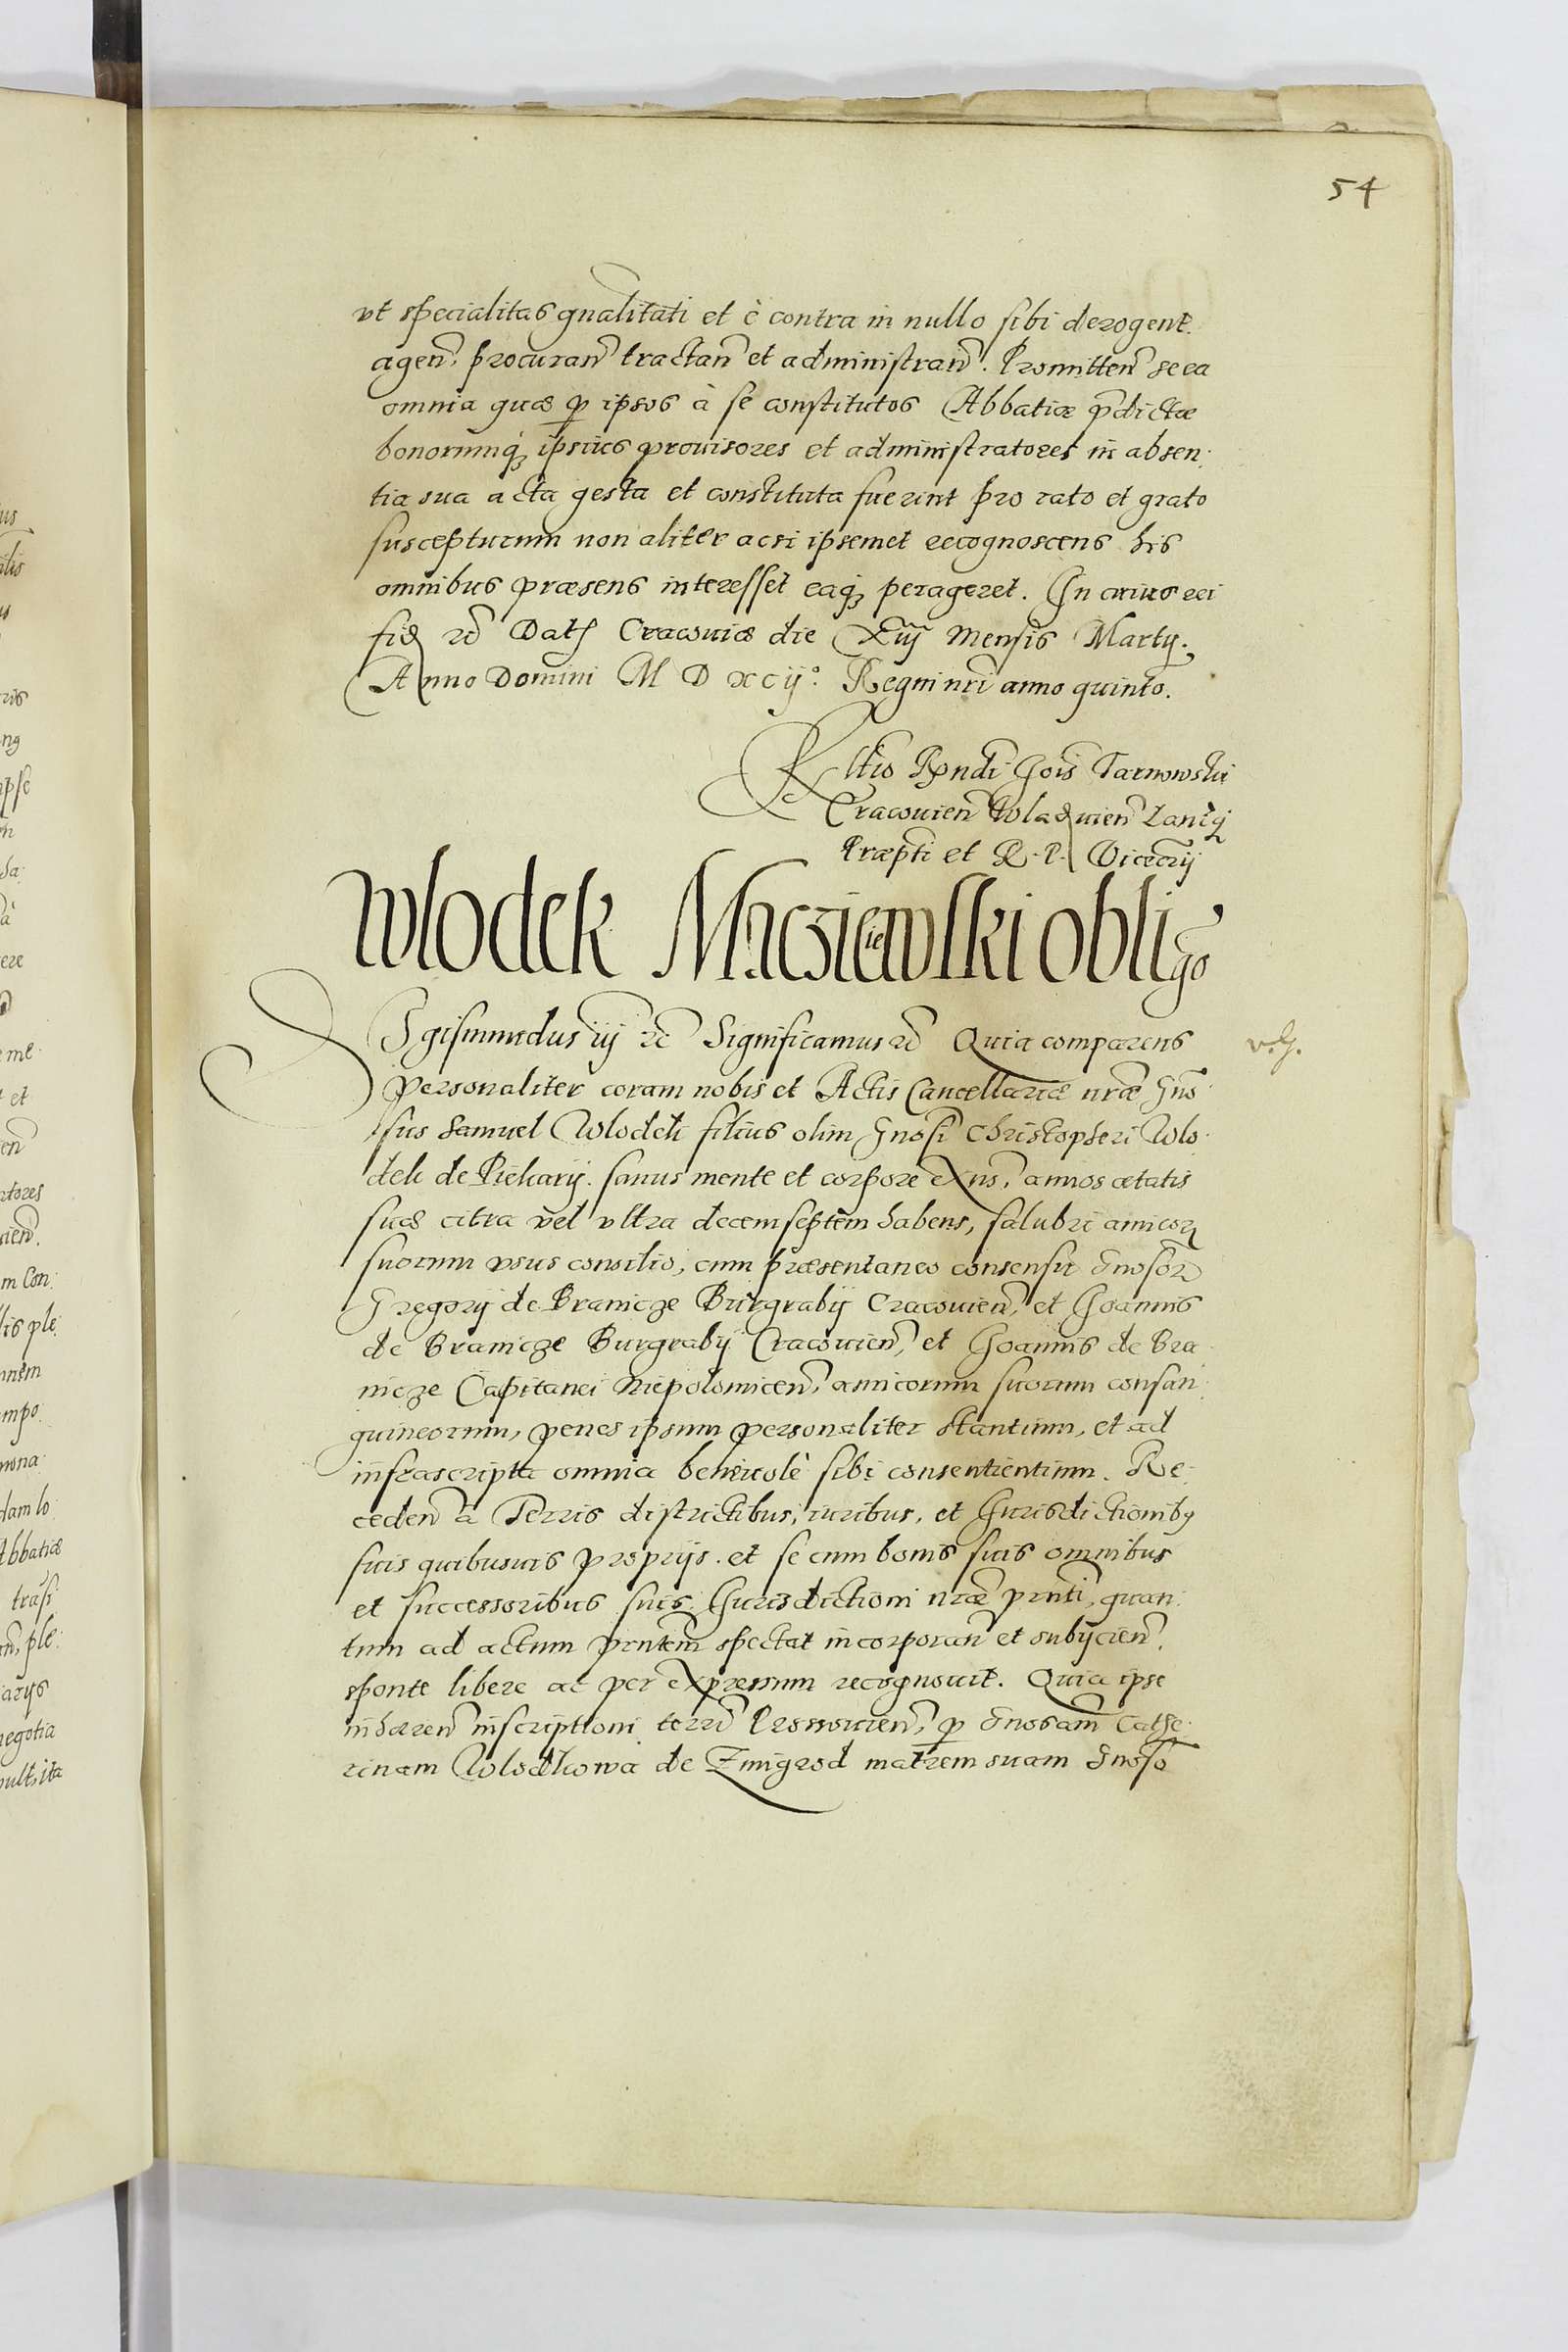 54
vt specialitas gnalitati et è contra in nullo sibi derogent.
agen̄, procuran̄ tractan̄ et administran̄. Promitten̄ se ea
omnia quæ ꝑ ipsos à se constitutos Abbatiæ p̄dictæ
bonorumq́ꝫ ipsius prouisores et administratores in absen:
tia sua acta gesta et constituta fuerint pro rato et grato
suscepturum non aliter acsi ipsemet recognoscens his
omnibus præsens interesset eaqꝫ perageret. In cuius rei
fidē etc̄ Dat Cracouiæ die Xiij Mensis Martij.
Anno Domini M D xcij° Regni nr̄i anno quinto.
Rltio Rṇdi Jois Tarnowski
Cracouien̄ Wladuien̄ Lanc̄ij
Præpti et R. P. Vicecr̄ij
Wlodek Macziewski obligo
ie
Sigismundus iij etc̄ Significamus etc̄ Quia comparens
v. G.
personaliter coram nobis et Actis Cancellariæ nr̄æ Gn̄o
sus Samuel Wlodek filius olim Gnosi Christopheri Wlo:
dek de Piekarij. sanus mente et corpore exn̄s, annos ætatis
suæ citra vel vltra decem septem habens, salubri amicoꝝ
suorum vsus consilio, cum præsentaneo consensu Gnosor̄
Gregorij de Branicze Burgrabij Cracouien̄, et Joannis
de Branicze Burgrabij Cracouien̄, et Joannis de Bra
nicze Capitanei Niepolomicen̄, amicorum suorum consan:
guineorum, penes ipsum personaliter stantium, et ad
infrascripta omnia beneuolè sibi consentientium. Re:
ceden̄ à Terris districtibus, iuribus, et Jurisdictionibꝫ
suis quibusuis proprijs. et se cum bonis suis omnibus
et successoribus suis Jurisdictioni nr̄æ pn̄ti, quan:
tum ad actum pn̄tem spectat incorporan̄ et subijcien̄.
sponte libere ac per expressum recognouit. Quia ipse
inhæren̄ inscriptioni terr̄i Prossouien̄, ꝑ Gnosam Cathe:
rinam Wlodkowa de Zmigrod matrem suam Gnoso